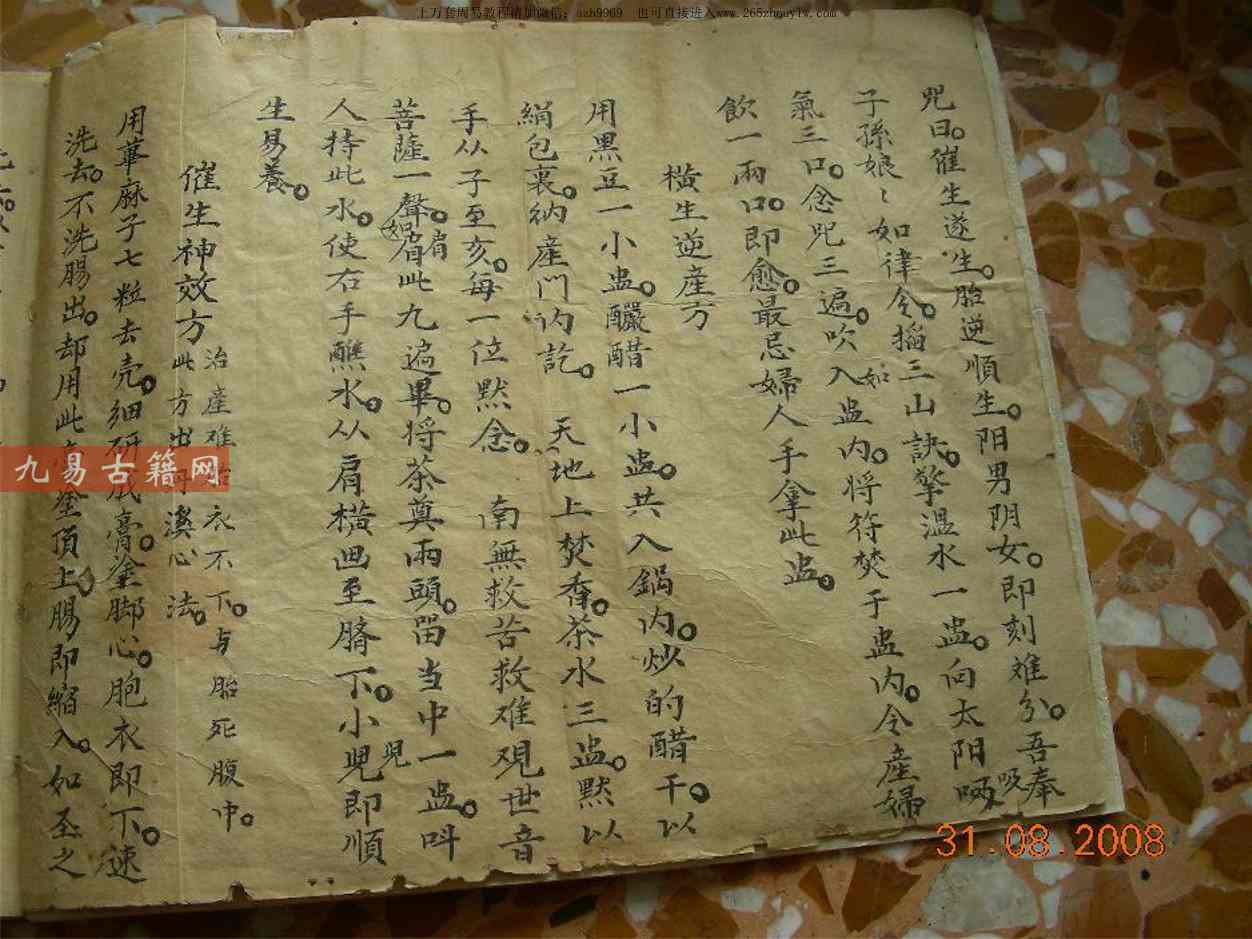 上万套周易教程请加微信：aah9969 也可直接进入www.265zhouyiw.com
咒曰。催生遂生。胎逆順生。阳男阴女。即刻难分。吾奉
子孫娘〻如律令。搯三山訣。擎温水一盅。向太阳吸
氣三口。念咒三遍。吹入盅内。将符焚于盅内。令産婦
飲一兩口。即愈。最忌婦人手拿此盅。
横生逆産方
用黑豆一小盅。釅醋一小盅。共入鍋内。炒的醋干。以
絹包裏。纳産門内訖。天地上焚香。茶水三盅。默以
手从子至亥。每一位默念。南無救苦救难观世音
菩薩一聲。肩此九遍畢。将茶奠兩頭。留当中一盅。叫
人持此水。使右手醮水。从肩横画至臍下。小児即順
生易養。
催生神效方
治産难衣不下。与胎死腹中。
此方出丹溪心法。
用萆麻子七粒去壳。细研成膏。塗脚心。胞衣即下。速
洗去。不洗腸出。却用此塗頂上。腸即縮入。如圣之
九易古籍网
31.08.2008